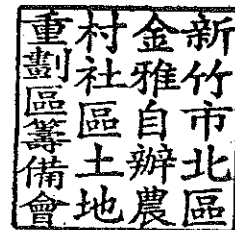 新竹市北區
金雅自辦農
村社區土地
重劃區籌備會